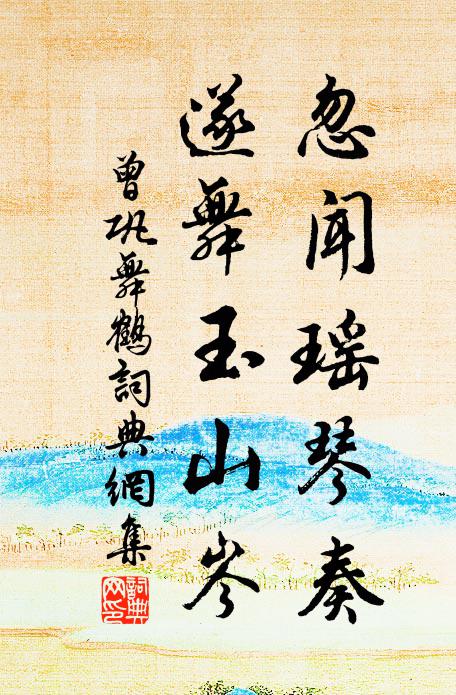 忽闻瑶琴奏
遂舞玉山岑
曾巩舞鹤詞典網集
詞典